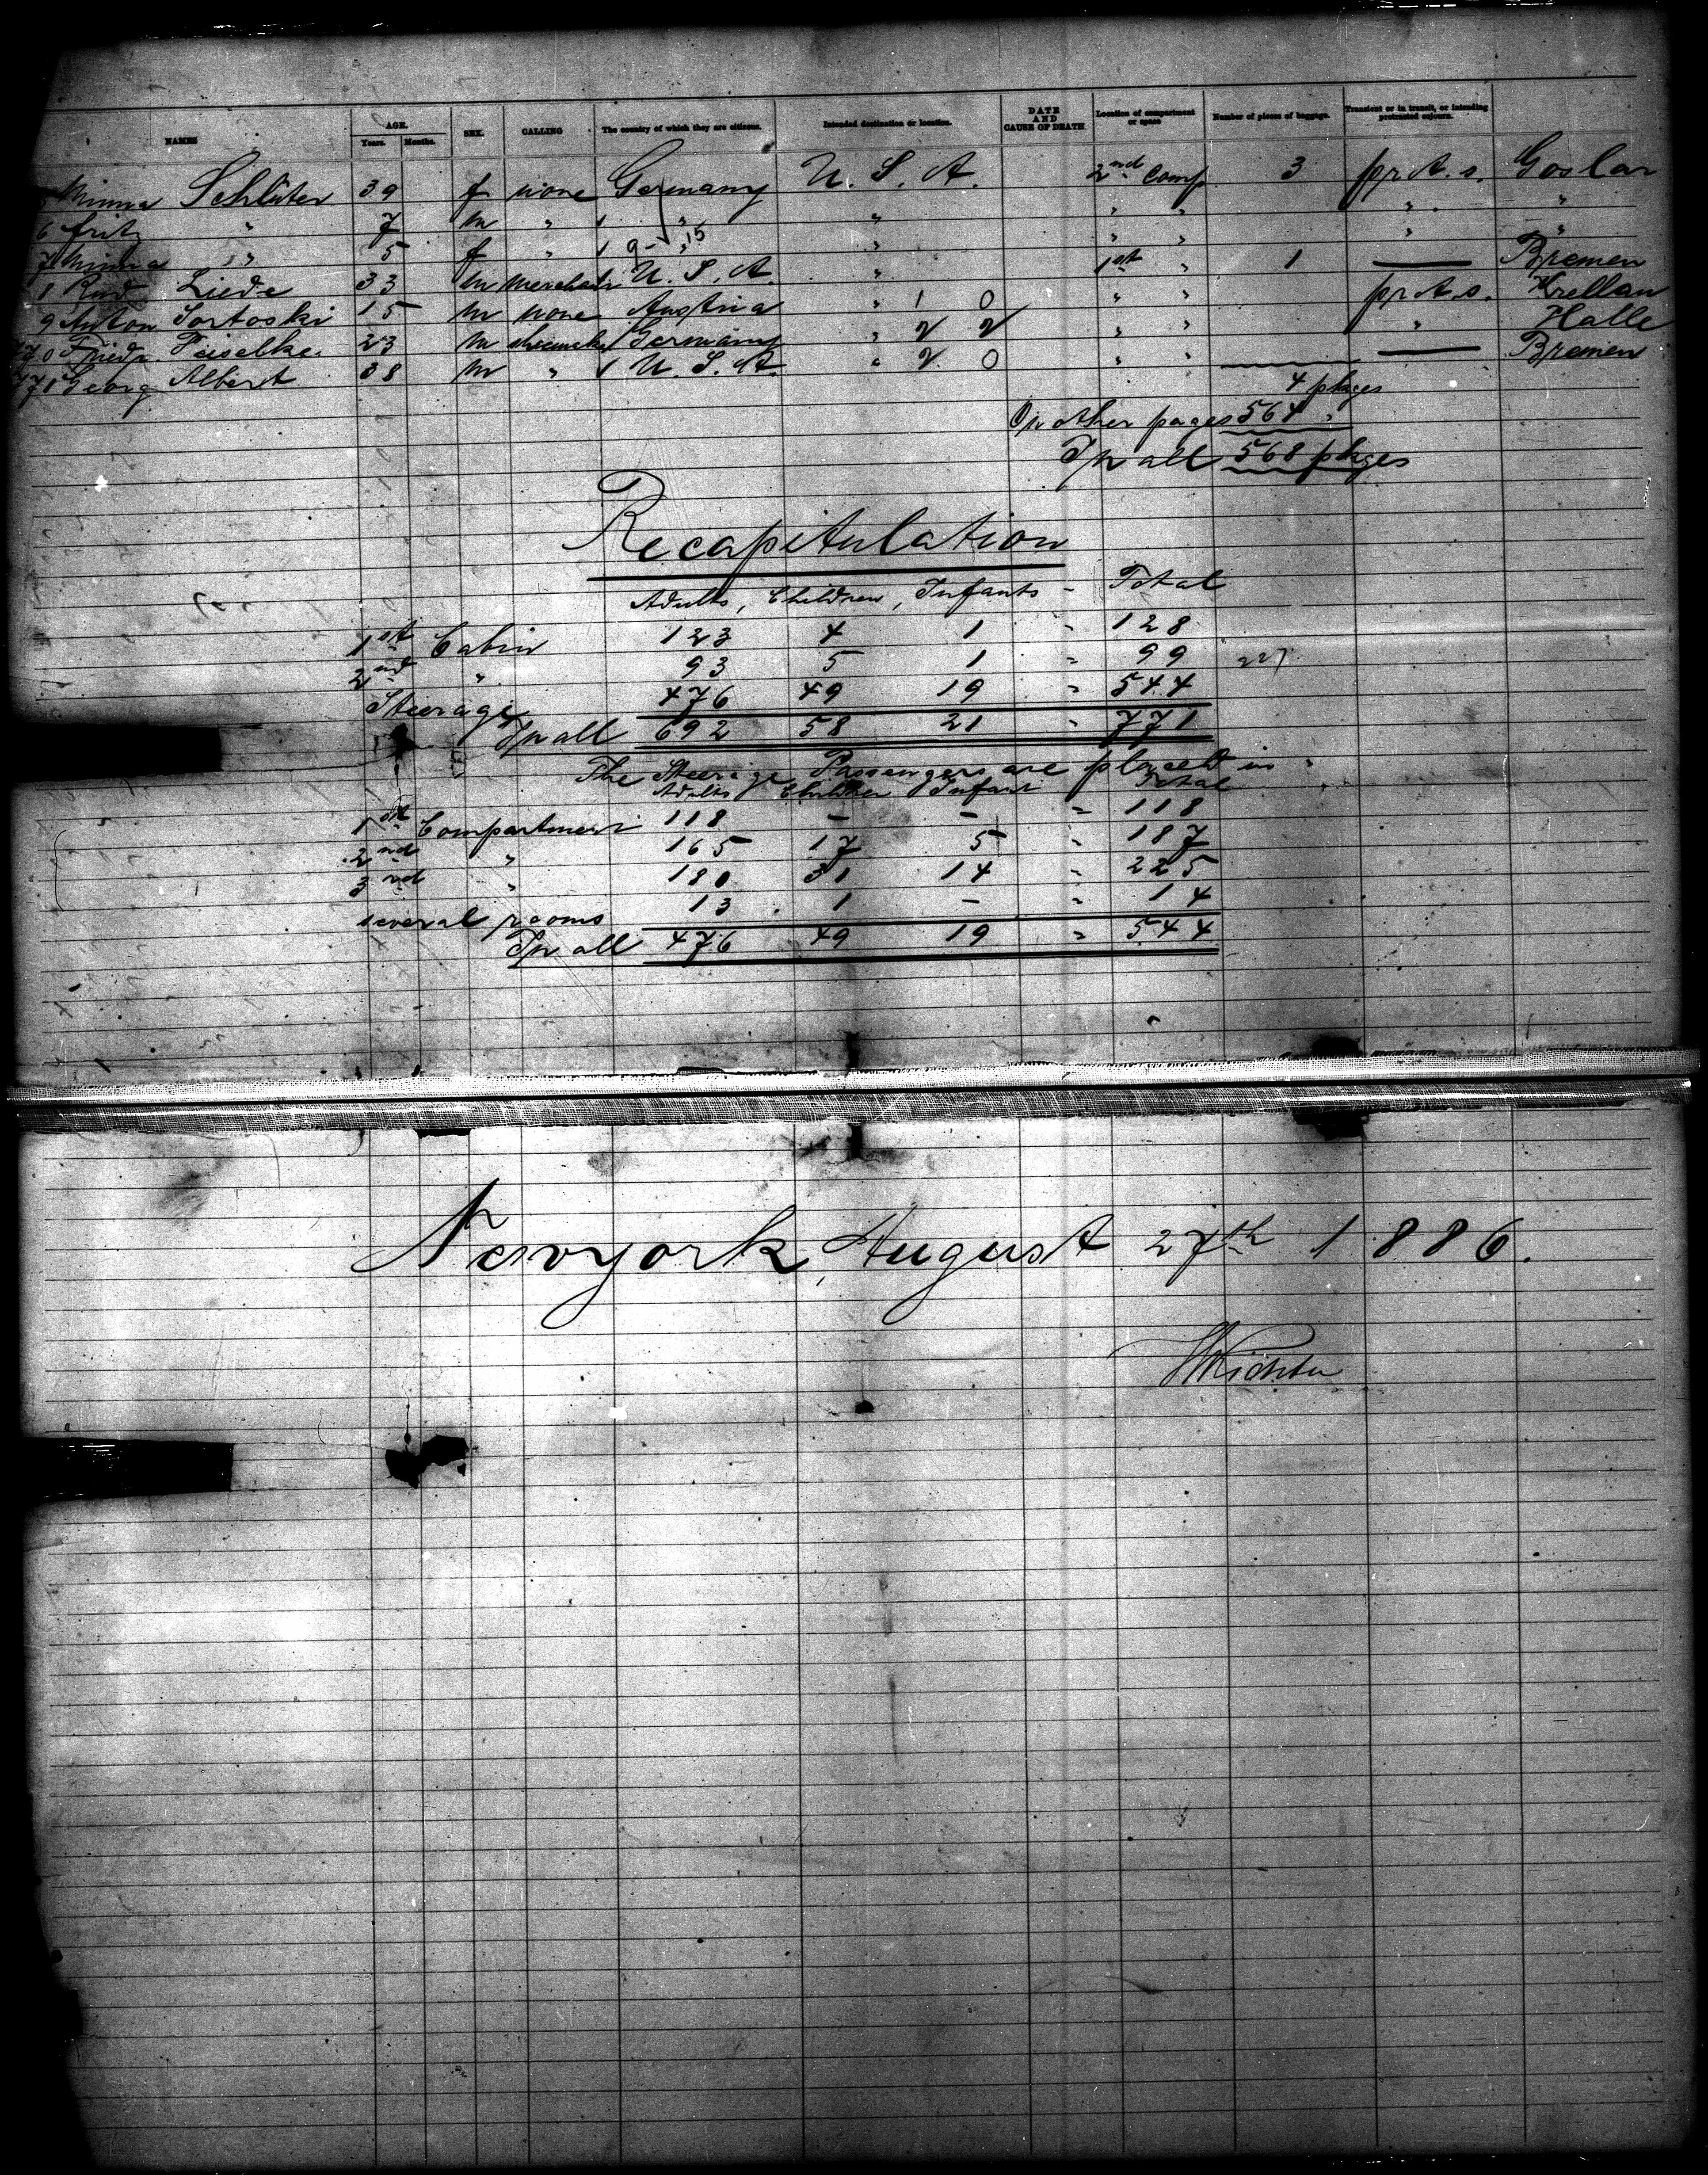 NAMES AGE. Years. Months. SEX. CALLING The country of which they are citizens. Intended destination or location. DATE AND CAUSE OF DEATH Location of compartment or space Number of pieces of baggage. Transient or in transit, or intending protracted sojourn.
Minna Schlüter 39 f none Germany U. S. A. 2nd Comp. 3 pr A. s. Goslar
6 Fritz " 7 m " " " " " " "
7 Minna " 5 f " 9- " 15 " " " " "
Rud. Liede 33 m merchant U. S. A. " 1st " 1 — Bremen
9 Anton Sortoski 15 m none Austria " 1 0 " " pr A. s.
770 Friedr. 23 m Germany " 2 2 " " " Halle
771 Georg Albert 38 m " U. S. A. " 2 0 " " — Bremen
4 pkges
On other pages 564 "
In all 568 pkges
Recapitulation
Adults, Children, Infants - Total
1st Cabin 123 4 1 - 128
2nd " 93 5 1 - 99 227
Steerage 476 49 19 - 544
In all 692 58 21 - 771
The Steerage Passengers are placed in
Adults Children Infant Total
1st Compartment 118 - - = 118
2nd " 165 17 5 - 187
3rd " 180 31 14 - 225
several rooms 13 1 - - 14
In all 476 49 19 - 544
Newyork, August 27th 1886.
Richter